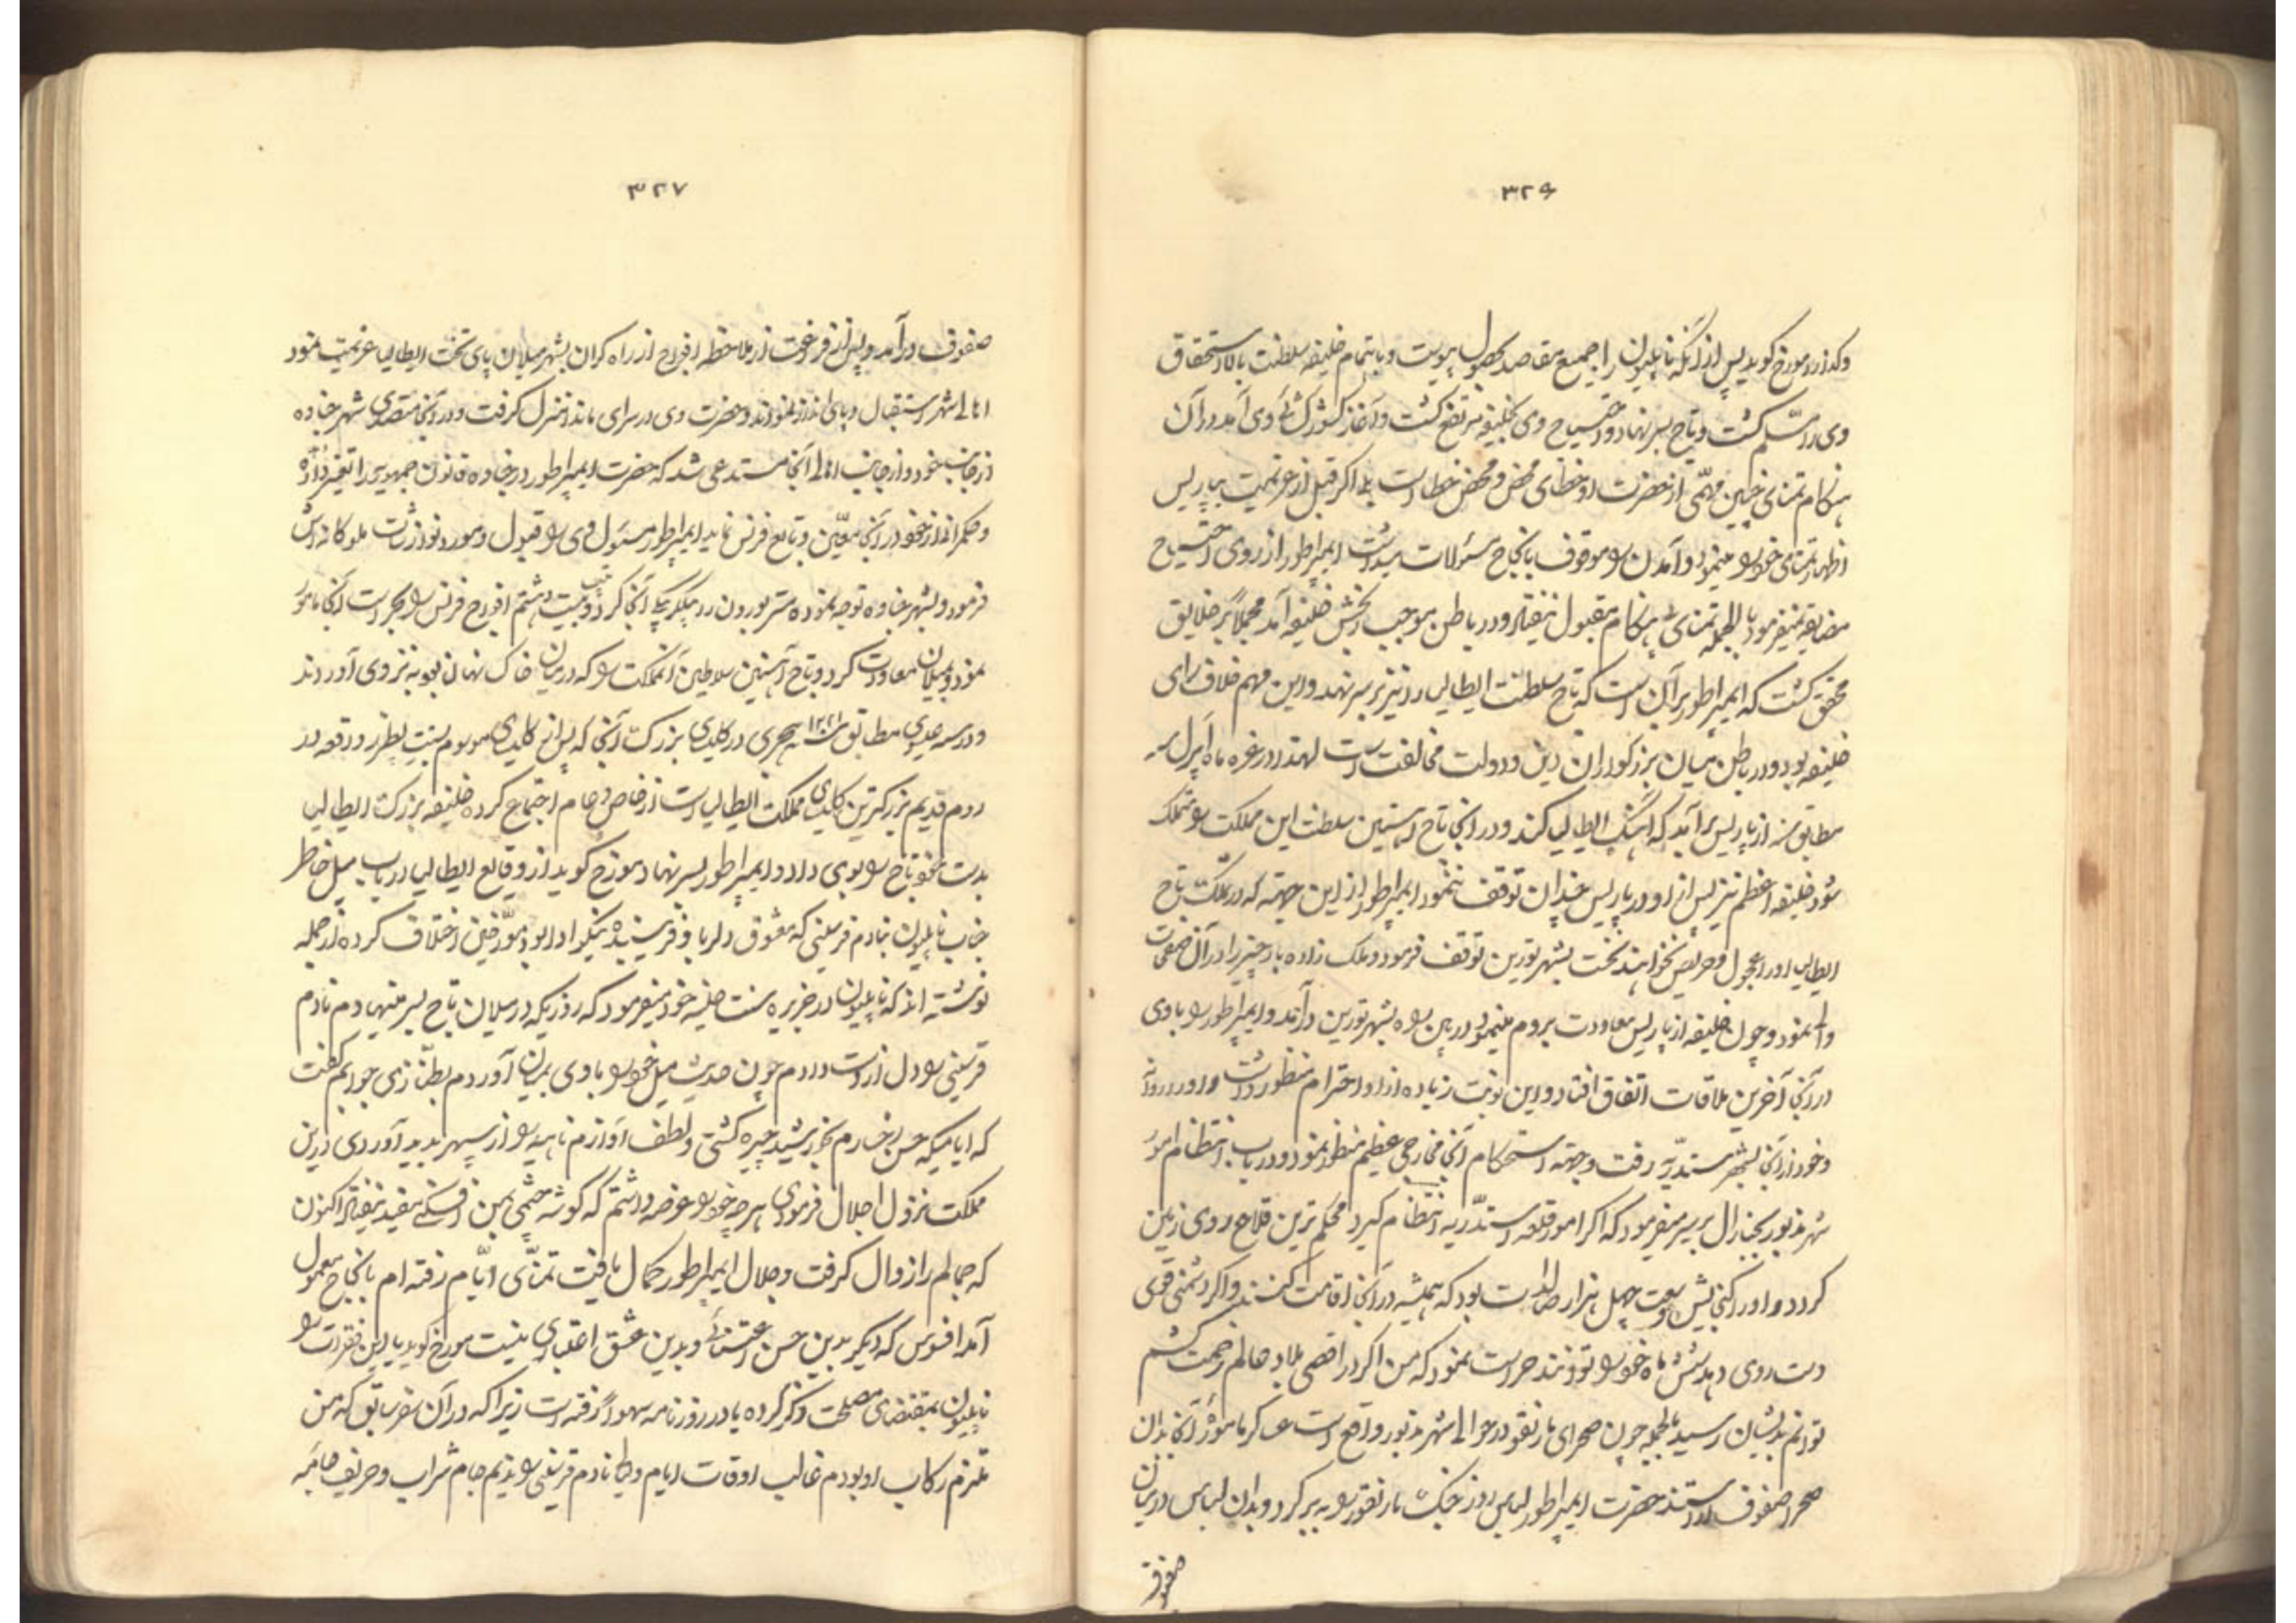 ۳۲۶
وگذارد مورخ گوید پس از آنکه ناپلیون را جمیع مقاصد بحصول پیوست و باتمام خلیفه سلطنت بالاستحقاق
وی را مسلم گشت و تاج بسر نهاد و احتیاج وی بخلیفه مرتفع گشت و آغاز کشورگشائی وی آمد در آن
هنگام تمنای چنین مهمی از حضرت او خطای محض و محض خطا است بلی اگر قبل از عزیمت بپاریس
اظهار تمنای خود را مینمود و آمدن را موقوف بانجاح مسئولات میداشت ایمپراطور از روی احتیاج
مضایقه نمیفرمود بالجمله تمنای بی هنگام مقبول نیفتاد و در باطن موجب رنجش خلیفه آمد مجملاً بر خلایق
محقق گشت که ایمپراطور بر آن است که تاج سلطنت ایطالیا را نیز بر سر نهد و این مهم خلاف رای
خلیفه بود و در باطن میان بزرگواران دین و دولت مخالفت است لهذا در غره ماه اپرل سنه
مطابق سنه از پاریس برآمد که آهنگ ایطالیا کند و در آنجا تاج آهنین سلطنت این مملکت را متملک
شود خلیفه اعظم نیز پس از او در پاریس چندان توقف ننمود ایمپراطور از این جهته که در مملکت تاج
ایطالیا او را عجول و حریص نخوانند نخست بشهر تورین توقف فرمود و ملک زاده را در آن صفحات
والی نمود و چون خلیفه از پاریس معاودت بروم مینمود در بین راه بشهر تورین درآمد و ایمپراطور را با وی
در آنجا آخرین ملاقات اتفاق افتاد و این نوبت زیاده از او احترام منظور داشت و او را روانه
و خود از آنجا بشهر اسندریه رفت و جهته استحکام آنجا مخارجی عظیم منظور نمود و در باب انتظام امور
شهر مذبور بجنرال برسیر میفرمود که اگر امور قلعه اسندریه انتظام گیرد محکم ترین قلاع روی زمین
گردد و او را گنجایش و وسعت چهل هزار صالدات بود که همیشه در آنجا اقامت کنند و اگر دشمنی قوی
دست روی دهد شش ماه خود را توانند حراست نمود که من اگر در اقصی بلاد عالم زحمت کشم
توانم بدیشان رسید بالجمله چون صحرای مارنغو در حوالی شهر مذبور واقع است عساکر مامور آنجا بدان
صحرا صفوف آراستند حضرت ایمپراطور لباس روز جنگ مارنغو را به بر کرد و بدان لباس در میان
صفوف
۳۲۷
صفوف درآمد و پس از فروغت از ملاحظه افواج از راه کران بشهر میلان پای تخت ایطالیا عزیمت نمود
اهالی شهر استقبال و پای انداز نمودند و حضرت وی در سرای ماندا منزل گرفت و در آنجا متصدی شهر جناوه
از جانب خود و از جانب اهالی آنجا مستدعی شد که حضرت ایمپراطور در جناوه قانون جمهوری را تغییر داده
و حکمرانی از خود در آنجا معین و تابع فرنس نماید ایمپراطور مسئول وی را قبول و مورد نوازشات ملوکانه اش
فرمود و بشهر جناوه توجه نموده مستر بورون را بیگلربیگی آنجا کرد و بیست و هشتم افواج فرنس را بحراست آنجا مامور
نمود و بمیلان معاودت کرد و تاج آهنین سلاطین آنمملکت را که در میان خاک نهان بود به نزد وی آوردند
و در سنه عیسوی مطابق ۱۲۲۱ سنه هجری در کلیسای بزرگ آنجا که پس از کلیسای موسوم بسنت پطرز واقعه در
روم قدیم بزرگترین کلیسای مملکت ایطالیا است از خاص و عام اجتماع کرده خلیفه بزرگ ایطالیا
بدست خود تاج را بوی داد و ایمپراطور بسر نهاد مورخ گوید از وقایع ایطالیا در باب میل خاطر
جناب ناپلیون بنادم فرسینی که معشوق دلربا و فریبنده نیکو ادا بود مورخین اختلاف کرده از جمله
نوشته اند که ناپلیون در جزیره سنت هلینه خود میفرمود که روزیکه در میلان تاج بسر مینهادم مادام
قرسینی را دل از دست دادم چون حدیث میل خود را با وی بمیان آوردم بطنازی جوابم گفت
که ایامیکه حسن رخسارم بخورشید چیره گشتی و لطف آوازم ناهید را از سپهر بدید آوردی در این
مملکت نزول اجلال فرمودی هر چه خود را عرضه داشتم که گوشه چشمی بمن افکنی مفید نیفتاد اکنون
که جمالم را زوال گرفت و جلال ایمپراطور کمال یافت تمنای ایام رفته ام بانجاح معمول
آمد افسوس که دیگر بدین حسن اعتنائی و بدین عشق اعتباری نیست مورخ گوید یا این فقرات را
ناپلیون بمقتضای مصلحت ذکر کرده یا در روزنامه سهواً رفته است زیرا که در آن سفر سابق که من
ملتزم رکاب او بودم غالب اوقات ایام و لیالی مادام قرسینی را ندیم جام شراب و حریف جامه